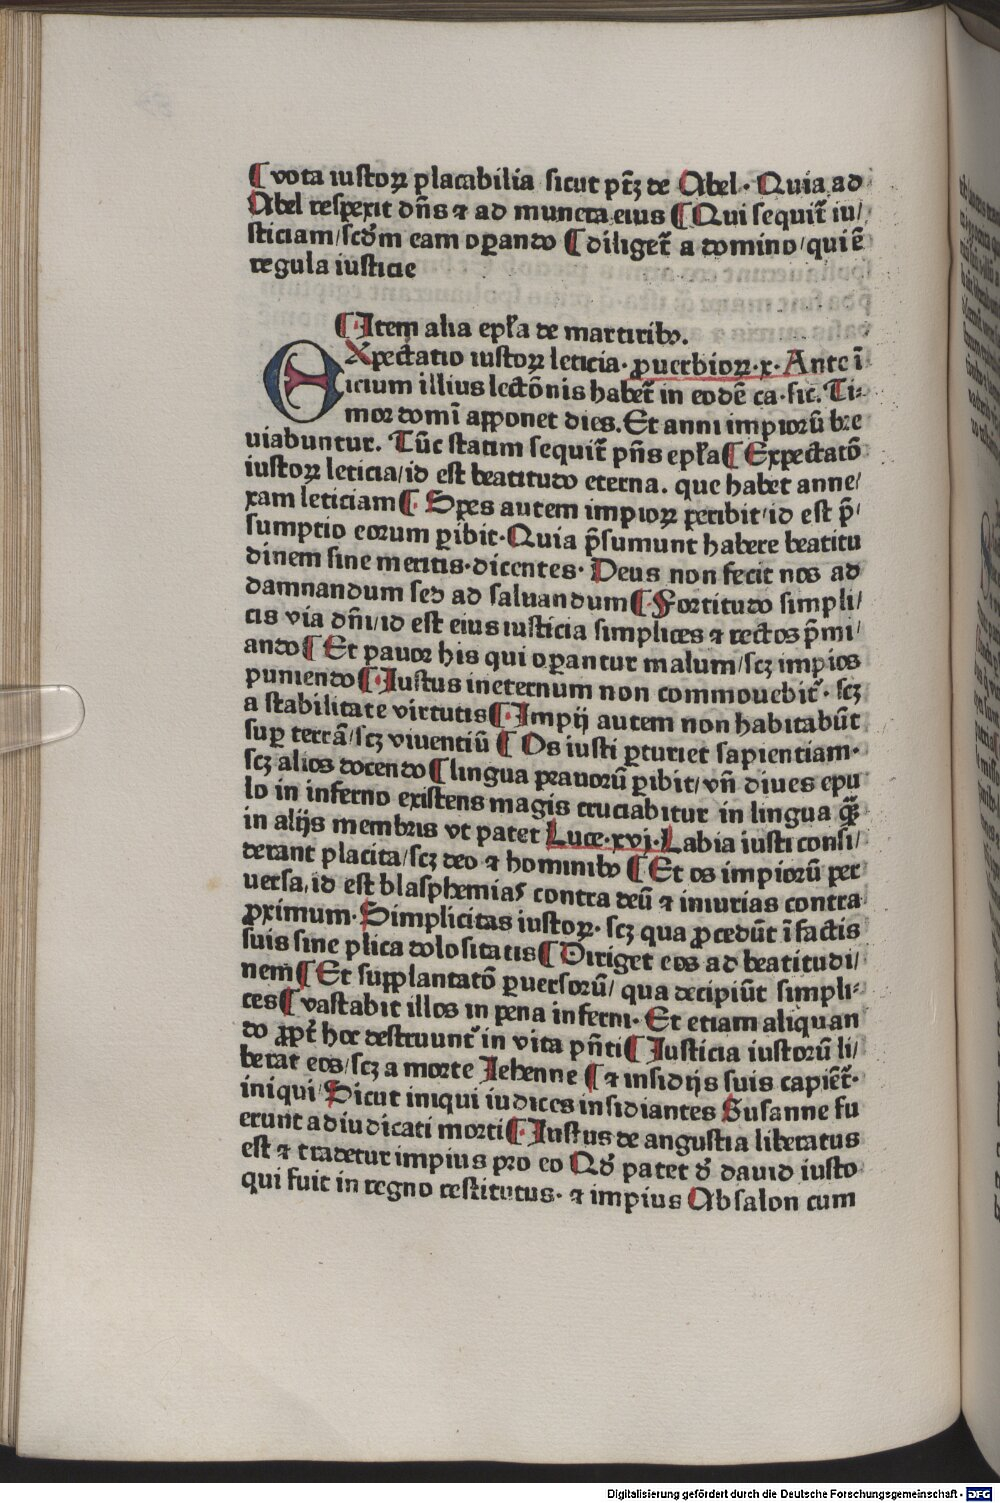 ¶ vota iustoꝝ placabilia sicut ptꝫ de Abel. Quia ad
Abel respexit dn̄s ⁊ ad munera eius ¶ Qui sequit̄ iu/
sticiam/scd̄m eam oꝑando ¶ diliget̄ a domino/qui ē
regula iusticie
¶ Item alia epl̄a de martiribꝫ.
EXpectatio iustoꝝ leticia. ꝓuerbioꝝ.x. Ante ī
icium illius lectōnis habet̄ in eodē ca. sic. Ti⸗
mor domī apponet dies. Et anni impiorū bre
uiabuntur. Tūc statim sequit̄ pn̄s epl̄a ¶ Expectatō
iustoꝝ leticia/id est beatitudo eterna. que habet anne/
xam leticiam ¶ Spes autem impioꝝ peribit/id est p̄/
sumptio eorum ꝑibit. Quia p̄sumunt habere beatitu
dinem sine meritis. dicentes. Deus non fecit nos ad
damnandum sed ad saluandum ¶ Fortitudo simpli/
cis via dn̄i/id est eius iusticia simplices ⁊ rectos p̄mi/
ando ¶ Et pauor his qui oꝑantur malum/scꝫ impios
puniendo ¶ Iustus ineternum non commouebit̄. scꝫ
a stabilitate virtutis ¶ Impij autem non habitabūt
suꝑ terrā/scꝫ viuentiū ¶ Os iusti ꝑturiet sapientiam.
scꝫ alios docendo ¶ lingua prauorū ꝑibit/vn̄ diues epu
lo in inferno existens magis cruciabitur in lingua qͣꝫ
in alijs membris vt patet Luce.xvj. Labia iusti consi/
derant placita/scꝫ deo ⁊ hominibꝫ ¶ Et os impiorū per
uersa, id est blasphemias contra deū ⁊ iniurias contra
ꝓximum. Simplicitas iustoꝝ. scꝫ qua ꝓcedūt ī factis
suis sine plica dolositatis ¶ Diriget eos ad beatitudi/
nem ¶ Et supplantatō ꝑuersorū/ qua decipiūt simpli⸗
ces ¶ vastabit illos in pena inferni. Et etiam aliquan
do ꝓpt̄ hoc destruunt̄ in vita pn̄ti ¶ Iusticia iustorū li/
berat eos/scꝫ a morte Iehenne ¶ ⁊ insidijs suis capiēt̄.
iniqui/ Sicut iniqui iudices insidiantes Susanne fu
erunt adiudicati morti ¶ Iustus de angustia liberatus
est ⁊ tradetur impius pro eo Qd̄ patet d̄ dauid iusto
qui fuit in regno restitutus. ⁊ impius Absalon cum
Digitalisierung gefördert durch die Deutsche Forschungsgemeinschaft - DFG